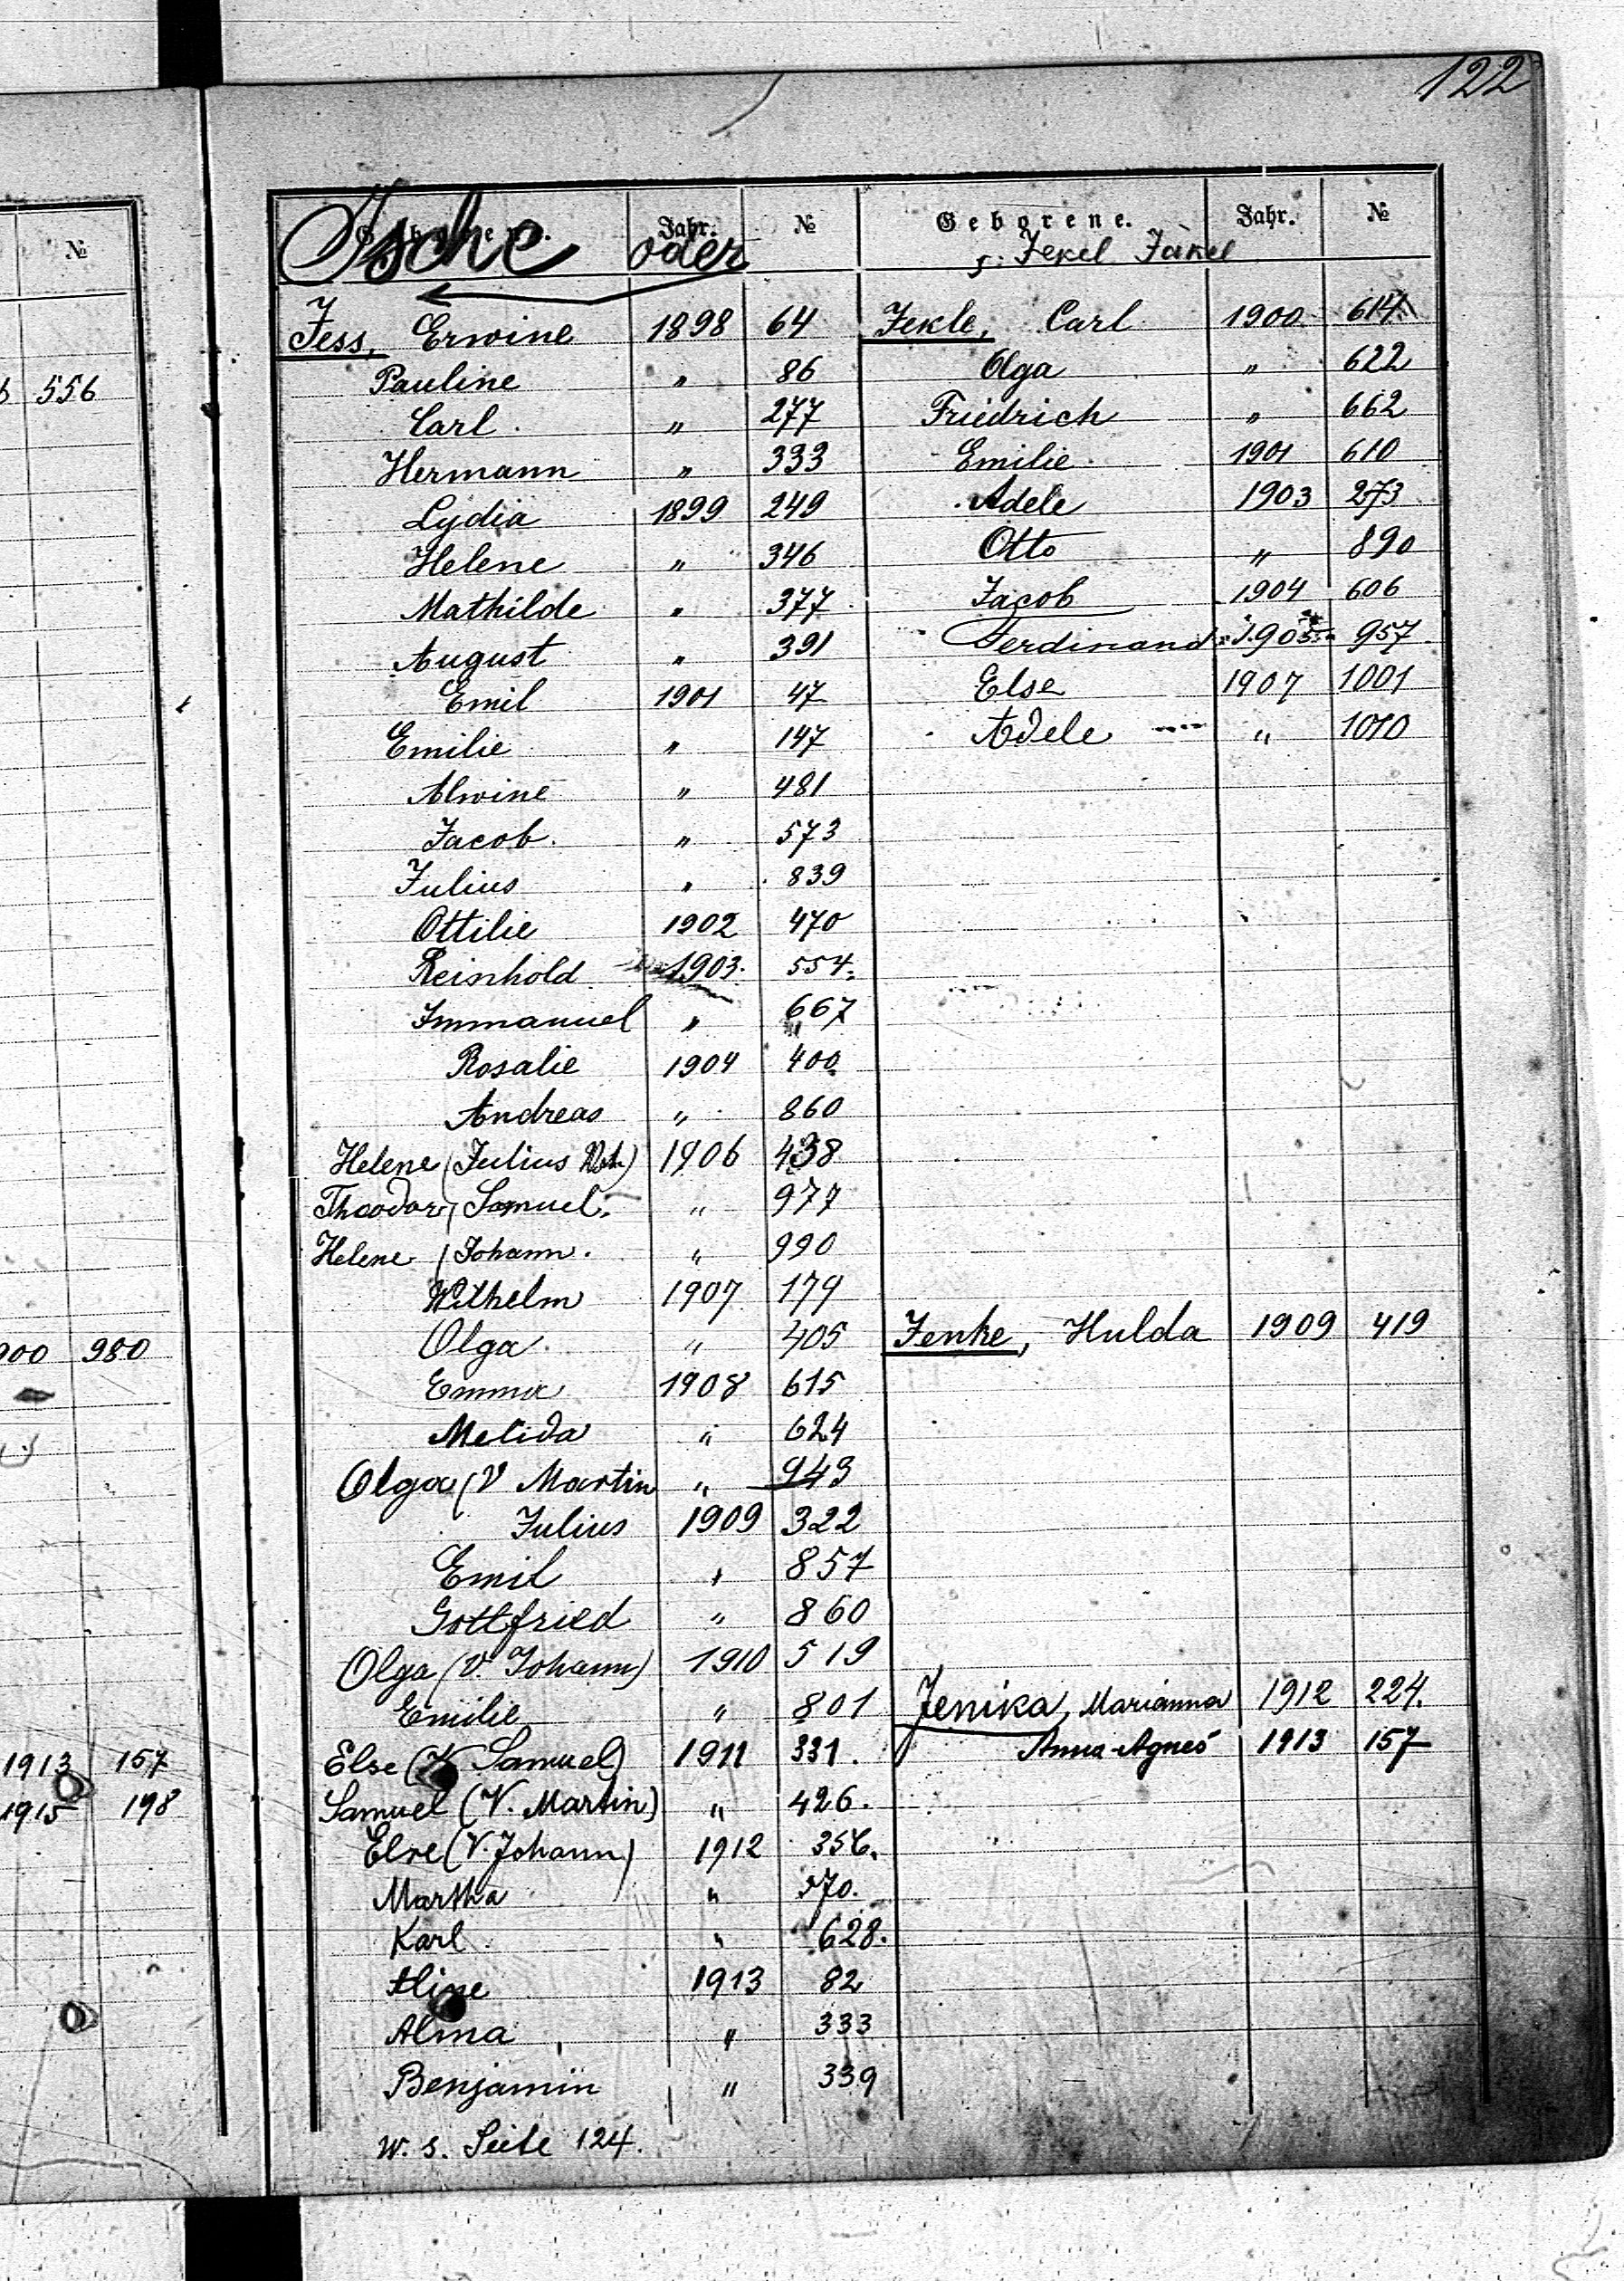 122
№
556
900 980
1913 157
1915 198
Geborene. Jahr. №
Ische oder
Jess, Erwine 1898 64
Pauline " 86
Carl " 277
Hermann " 333
Lydia 1899 249
Helene " 346
Mathilde " 377
August " 391
Emil 1901 47
Emilie " 147
Alwine " 481
Jacob. " 573
Julius " 839
Ottilie 1902 470
Reinhold 1903. 554.
Immanuel " 667
Rosalie 1904 400
Andreas " 860
Helene (Julius 1906 438
Theodor (Samuel. " 977
Helene (Johann. " 990
Wilhelm 1907 179
Olga " 405
Emma 1908 615
Melida " 624
Olga (V Martin " 943
Julius 1909 322
Emil " 857
Gottfried " 860
Olga (V. Johann) 1910 519
Emilie " 801
Else (V Samuel) 1911 331.
Samuel (V. Martin) " 426.
Else (V. Johann) 1912 356.
Martha " 570.
Karl " 628.
Aline 1913 82
Alma " 333
Benjamin " 339
w. s. Seite 124.
Geborene. Jahr. №
s: Jekel Jäkel
Jekle, Carl 1900 614
Olga " 622
Friedrich " 662
Emilie 1901 610
Adele 1903 273
Otto " 890
Jacob 1904 606
Ferdinand 1905 957
Else 1907 1001
Adele " 1010
Jenke, Hulda 1909 419
Jenika, Marianna 1912 224.
Anna-Agnes 1913 157